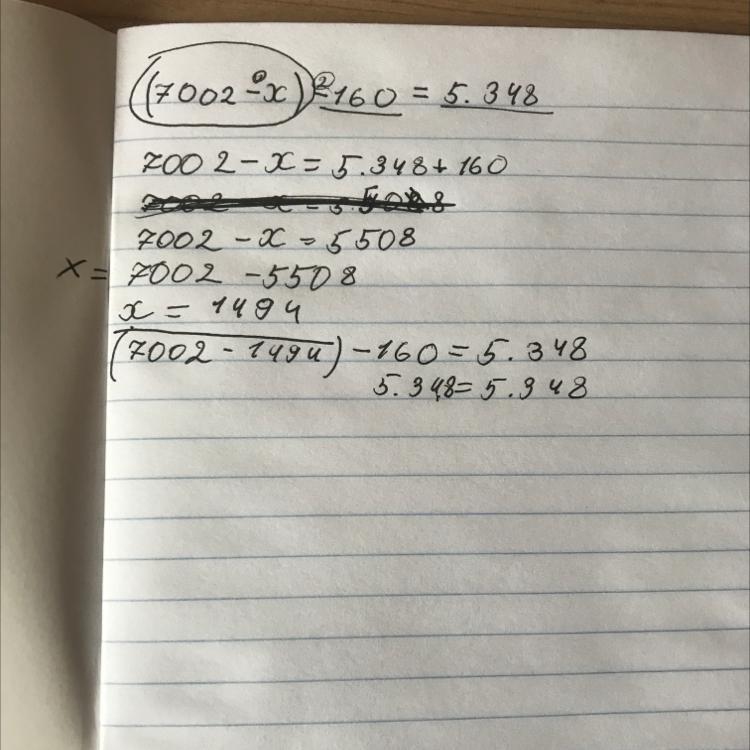 (7002 - x) - 160 = 5.348
7002 - x = 5.348 + 160
7002 - x = 5508
x = 7002 - 5508
x = 1494
(7002 - 1494) - 160 = 5.348
5.348 = 5.348